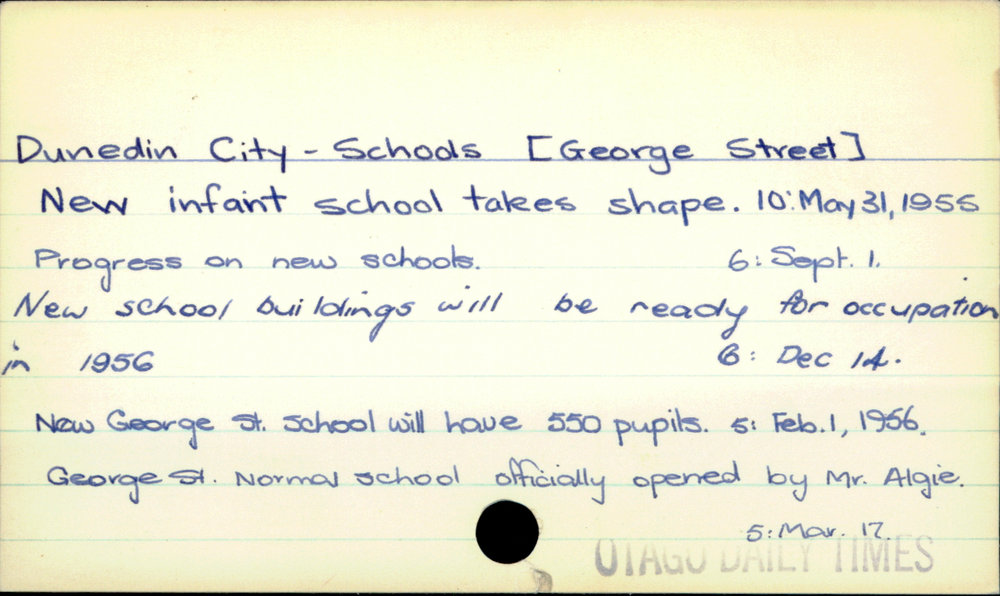 Dunedin City - Schools [George Street]
New infant school takes shape. 10: May 31, 1955
Progress on new schools. 6: Sept. 1.
New school buildings will be ready for occupation
in 1956 6: Dec 14.
New George St. School will have 550 pupils. 5: Feb. 1, 1956.
George St. Normal school officially opened by Mr. Algie.
5: Mar. 17.
OTAGO DAILY TIMES